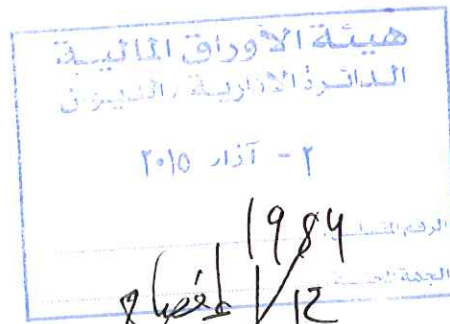 هيئة الأوراق المالية
الدائرة الادارية ، الديوان
٢ - آذار ٢٠١٥
الرقم المتسلسل 1984
الجهة المختصة